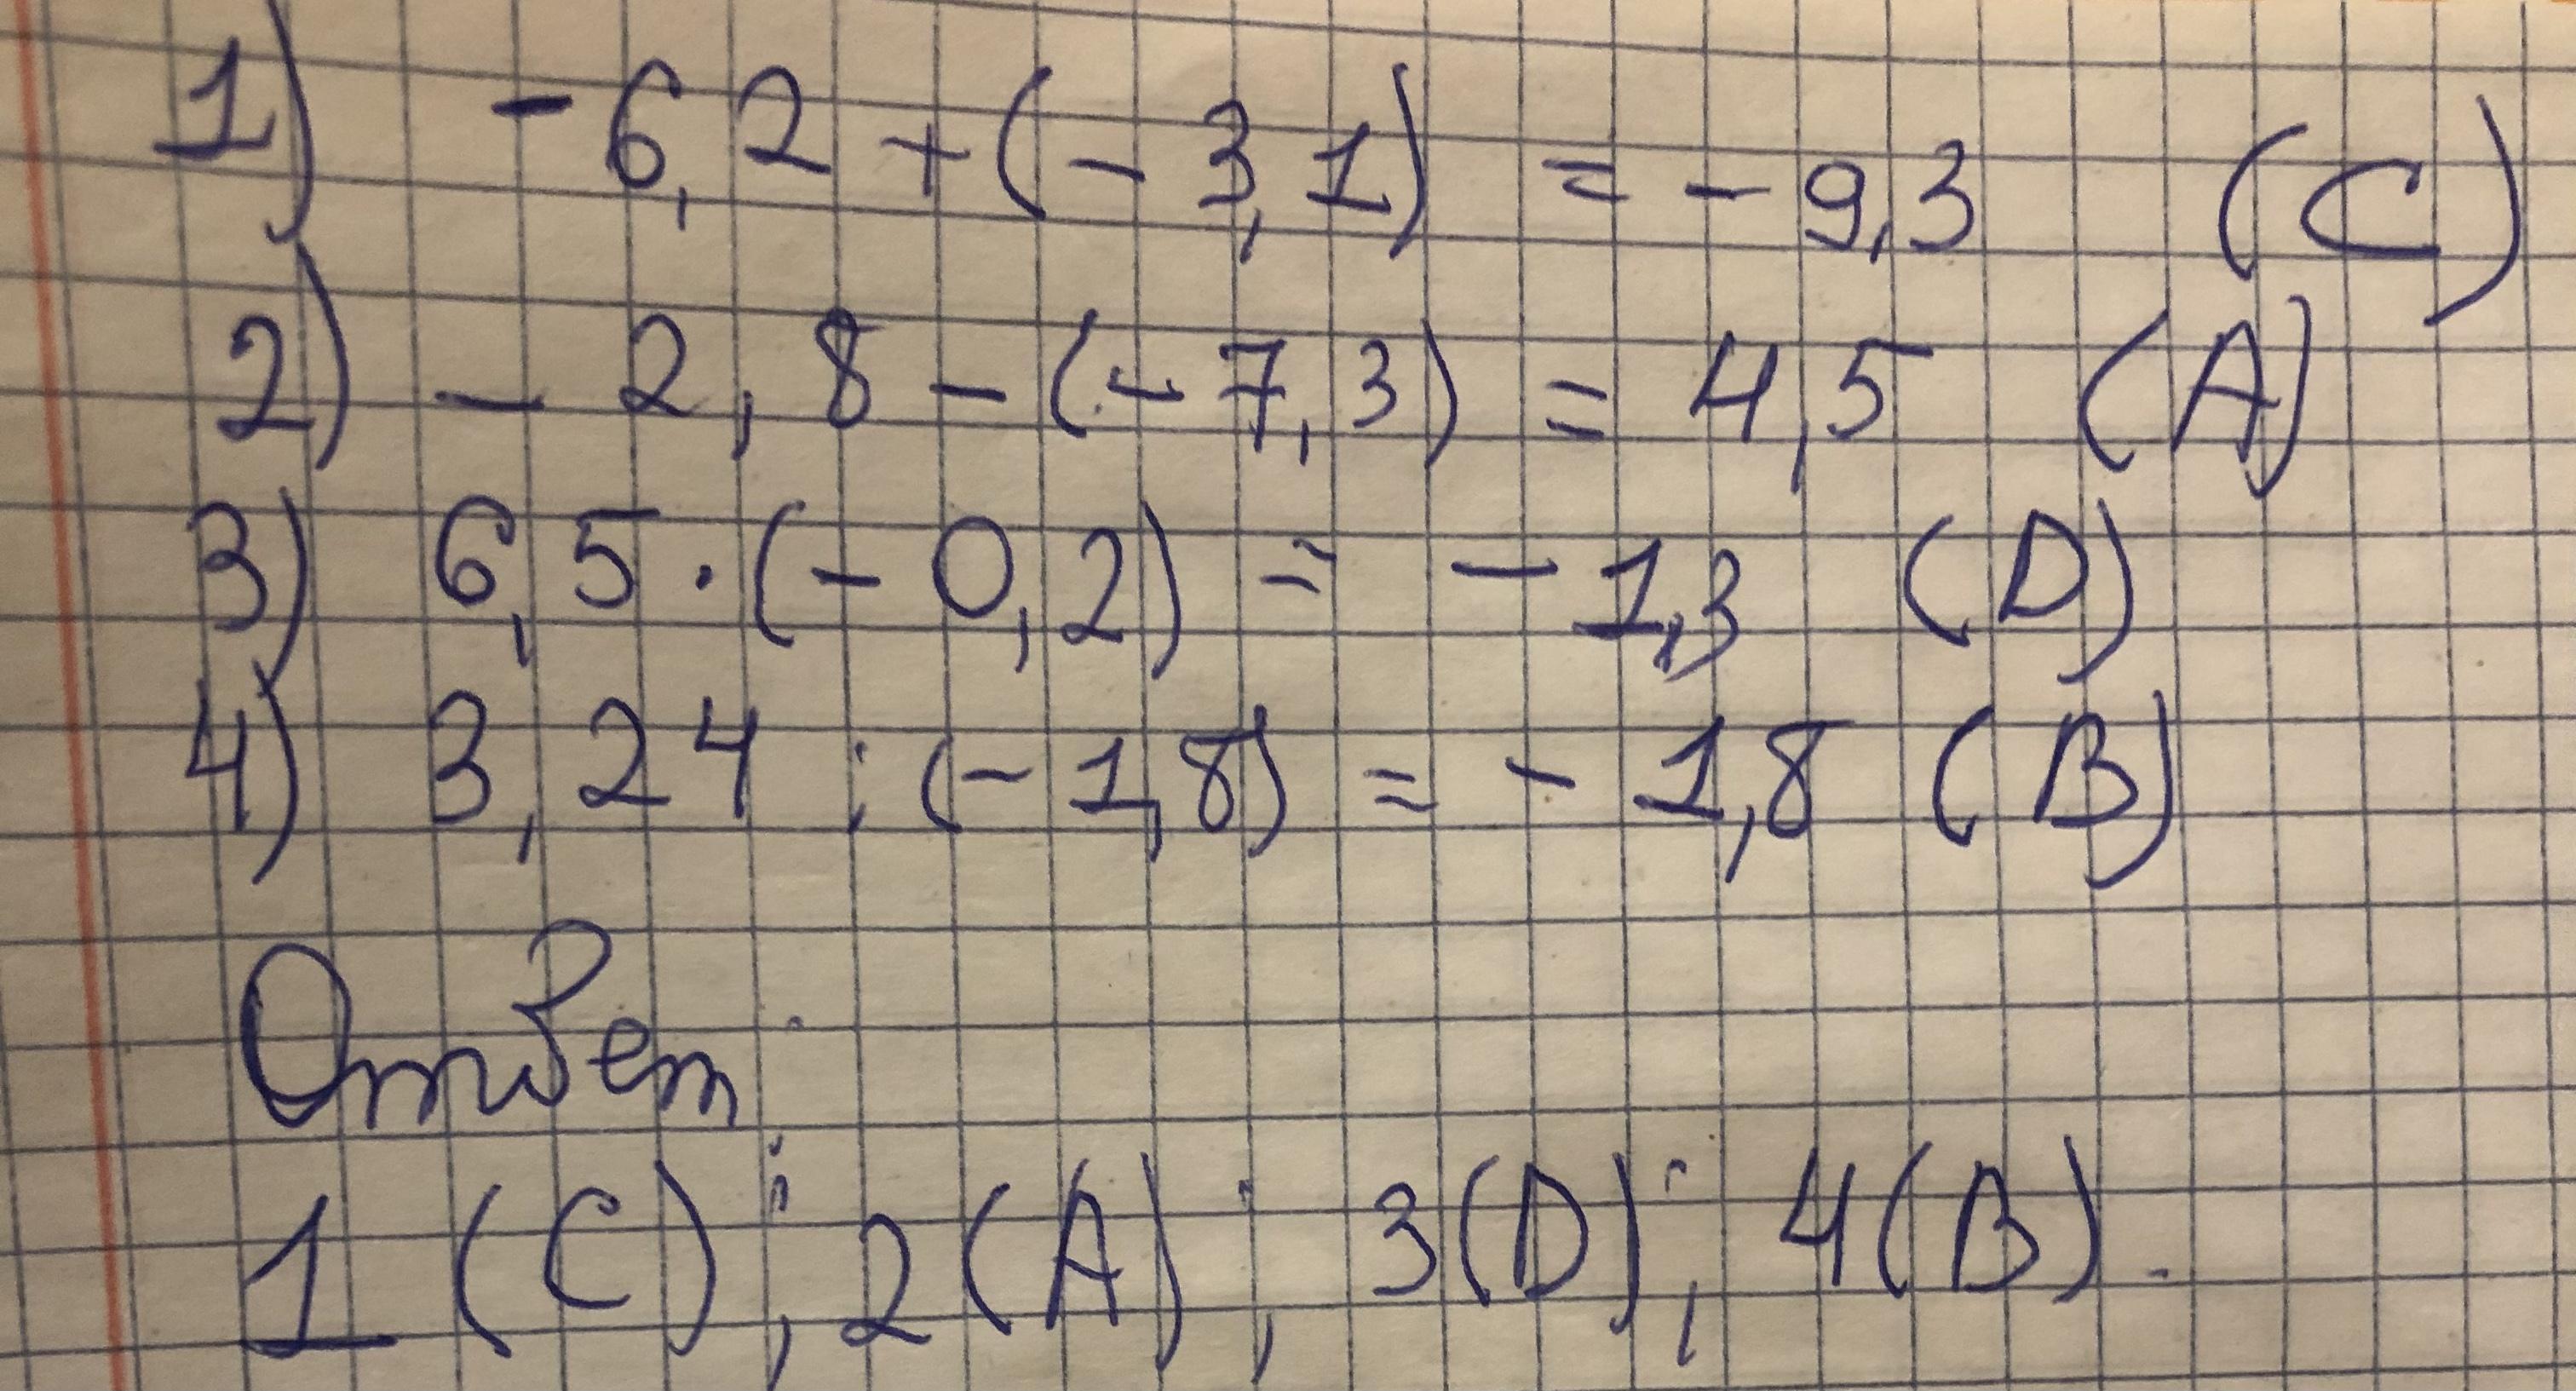 1) -6,2 + (-3,1) = -9,3 (C)
2) - 2,8 - (-7,3) = 4,5 (A)
3) 6,5 · (-0,2) = -1,3 (D)
4) 3,24 : (-1,8) = -1,8 (B)
Ответ:
1 (C); 2 (A); 3 (D); 4 (B).